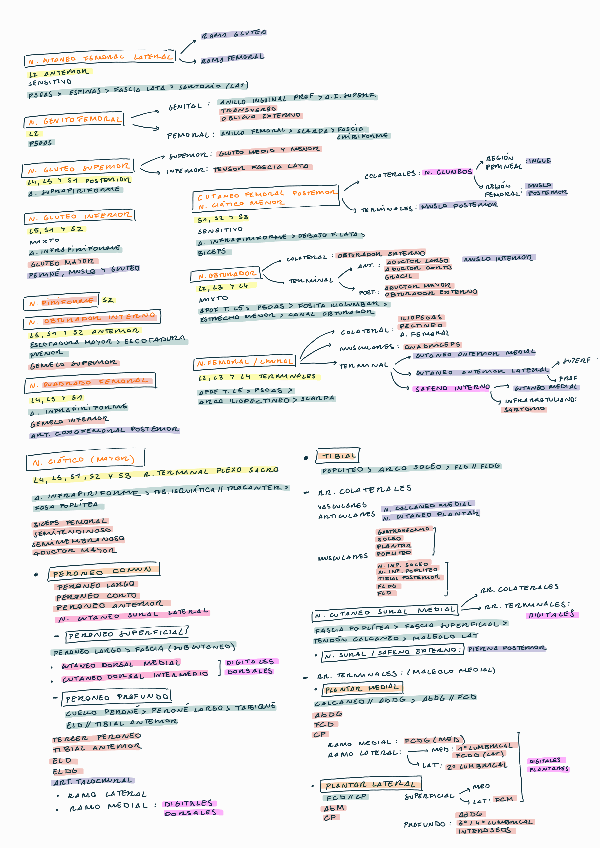 N. CUTANEO FEMORAL LATERAL
RAMO GLUTEO
RAMO FEMORAL
L2 ANTERIOR
SENSITIVO
PSOAS > ESPINAS > FASCIA LATA > SARTORIO (LAT)
N. GENITOFEMORAL
GENITAL : ANILLO INGUINAL PROF > A.E. SUPERF.
TRANSVERSO
OBLICUO EXTERNO
FEMORAL : ANILLO FEMORAL > SCARPA > FASCIA
CRIBIFORME
L2
PSOAS
N. GLUTEO SUPERIOR
SUPERIOR: GLUTEO MEDIO Y MENOR
INFERIOR: TENSOR FASCIA LATA
L4, L5 Y S1 POSTERIOR
A. SUPRAPIRIFORME
N. GLUTEO INFERIOR
L5, S1 Y S2
MIXTO
A. INFRAPIRIFORME
GLUTEO MAYOR
PERINÉ, MUSLO Y GLUTEO
N. PIRIFORME S2
N. OBTURADOR INTERNO
L5, S1 Y S2 ANTERIOR
ESCOTADURA MAYOR > ESCOTADURA
MENOR
GEMELO SUPERIOR
N. CUADRADO FEMORAL
L4, L5 Y S1
A. INFRAPIRIFORME
GEMELO INFERIOR
ART. COXOFEMORAL POSTERIOR
CUTANEO FEMORAL POSTERIOR
N. CIÁTICO MENOR
COLATERALES: N. CLUNEOS
REGIÓN
PERINEAL : INGLE
REGIÓN MUSLO
FEMORAL : POSTERIOR
TERMINALES: MUSLO POSTERIOR
S1, S2 Y S3
SENSITIVO
A. INFRAPIRIFORME > DEBAJO F. LATA >
BICEPS
N. OBTURADOR
COLATERAL : OBTURADOR EXTERNO
TERMINAL
ANT. : ADUCTOR LARGO MUSLO INTERIOR
ADUCTOR CORTO
GRACIL
POST : ADUCTOR MAYOR
OBTURADOR EXTERNO
L2, L3 Y L4
MIXTO
APOF T. L5 > PSOAS > FOSITA ILIOLUMBAR >
ESTRECHO MENOR > CANAL OBTURADOR
N. FEMORAL / CRURAL
COLATERAL : ILIOPSOAS
PECTINEO
A. FEMORAL
MUSCULARES: CUADRICEPS
TERMINAL
CUTANEO ANTERIOR MEDIAL
CUTANEO ANTERIOR LATERAL
SUPERF
PROF
SAFENO INTERNO
CUTANEO MEDIAL
INFRARROTULIANO:
SARTORIO
L2, L3 Y L4 TERMINALES
APOF T. L5 > PSOAS >
ARCO ILIOPECTINEO > SCARPA
N. CIÁTICO (MAYOR)
L4, L5, S1, S2 Y S3 R. TERMINAL PLEXO SACRO
A. INFRAPIRIFORME > TUB. ISQUIÁTICA // TROCANTER >
FOSA POPLÍTEA
BICEPS FEMORAL
SEMITENDINOSO
SEMIMEMBRANOSO
ADUCTOR MAYOR
• PERONEO COMUN
PERONEO LARGO
PERONEO CORTO
PERONEO ANTERIOR
N. CUTANEO SURAL LATERAL
– PERONEO SUPERFICIAL
PERONEO LARGO > FASCIA (SUBCUTANEO)
• CUTANEO DORSAL MEDIAL
• CUTANEO DORSAL INTERMEDIO
DIGITALES
DORSALES
– PERONEO PROFUNDO
CUELLO PERONÉ > PERONÉ LARGO > TABIQUE
ELD // TIBIAL ANTERIOR
TERCER PERONEO
TIBIAL ANTERIOR
ELD
ELDG
ART. TALOCRURAL
• RAMO LATERAL
• RAMO MEDIAL : DIGITALES
DORSALES
• TIBIAL
POPLITEO > ARCO SOLEO > FLD // FLDG
– RR. COLATERALES
VASCULARES
ARTICULARES
N. CALCANEO MEDIAL
N. CUTANEO PLANTAR
MUSCULARES
GASTROCNEMIO
SOLEO
PLANTAR
POPLITEO
N. INF. SOLEO
N. INF. POPLITEO
TIBIAL POSTERIOR
FLDG
FLD
N. CUTANEO SURAL MEDIAL
RR. COLATERALES
RR. TERMINALES:
DIGITALES
FASCIA POPLÍTEA > FASCIA SUPERFICIAL >
TENDÓN CALCANEO > MALEOLO LAT
• N. SURAL / SAFENO EXTERNO: PIERNA POSTERIOR
– RR. TERMINALES : (MALEOLO MEDIAL)
• PLANTAR MEDIAL
CALCANEO // ABDG > ABDG // FCD
ABDG
FCD
CP
RAMO MEDIAL : FCDG (MED)
RAMO LATERAL :
MED: 1º LUMBRICAL
FCDG (LAT)
LAT: 2º LUMBRICAL
DIGITALES
PLANTARES
• PLANTAR LATERAL
FCD // CP
ABM
CP
SUPERFICIAL
MED
LAT: FCM
PROFUNDO : ADDG
3º / 4º LUMBRICAL
INTEROSEOS